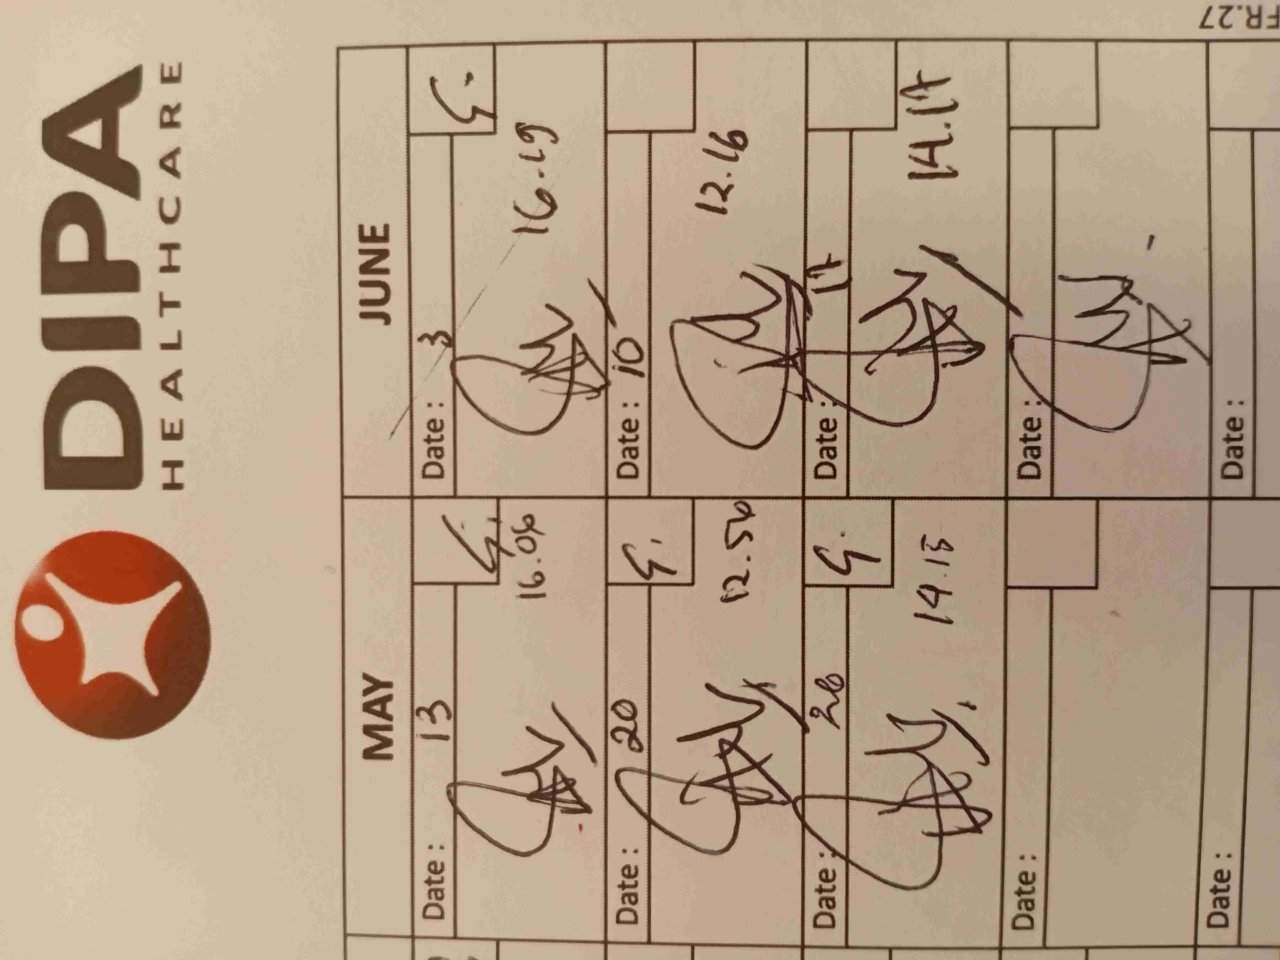 DIPA
HEALTHCARE
FR.27
MAY
JUNE
Date : 13
G.
16.06
Date : 3
G.
16.19
Date : 20
G.
12.50
Date : 10
12.16
Date : 26
G.
14.15
Date : 17
14.17
Date :
Date :
Date :
Date :